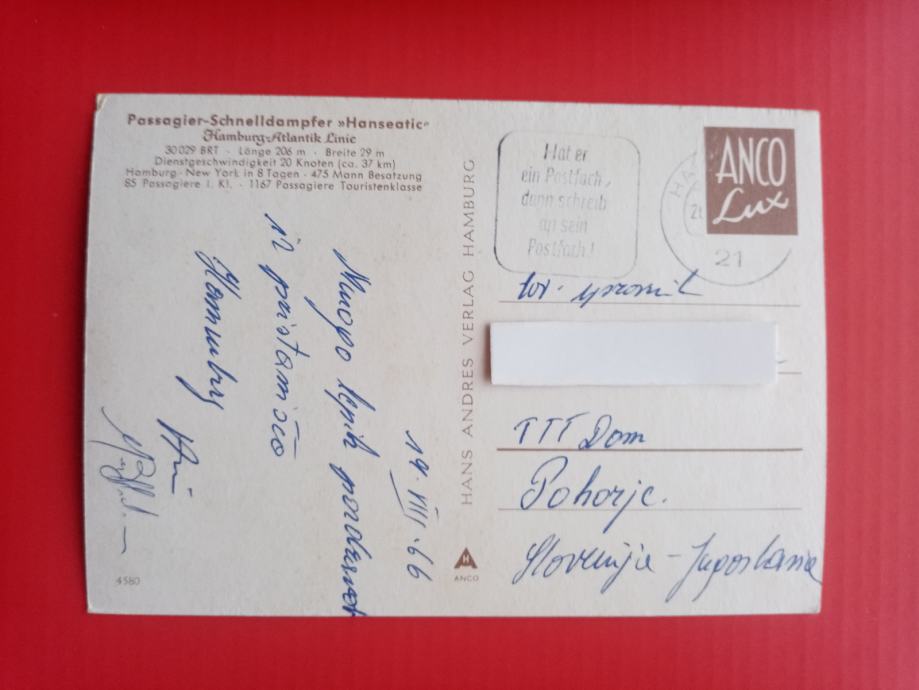 Passagier-Schnelldampfer »Hanseatic«
Hamburg-Atlantik Linie
30029 BRT · Länge 206 m · Breite 29 m
Dienstgeschwindigkeit 20 Knoten (ca. 37 km)
Hamburg - New York in 8 Tagen · 475 Mann Besatzung
85 Passagiere I. Kl. · 1167 Passagiere Touristenklasse
19. VIII. 66
Mnogo lepih pozdravov
iz pristanišča
Hamburg
4580
HANS ANDRES VERLAG HAMBURG
H
ANCO
Hat er
ein Postfach,
dann schreib
an sein
Postfach!
ANCO
Lux
HA
21
tov.
TTT Dom
Pohorje.
Slovenija - Jugoslavija